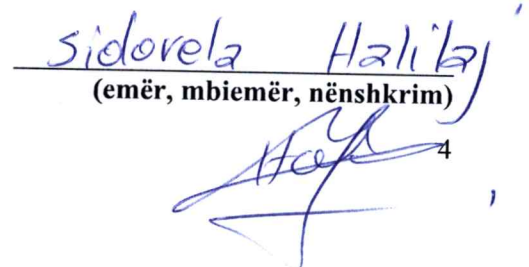 Sidorela Halilaj
(emër, mbiemër, nënshkrim)
4